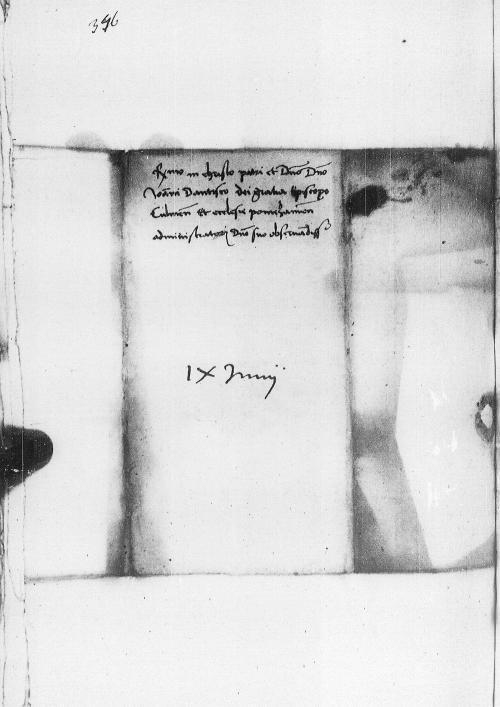 396
Rmo in christo patri et Dno Dno
Joanni Dantisco dei gratia Episcopo
Culmen et ecclesie pomezanien
administratori Dno suo obseruandiss
IX Junij